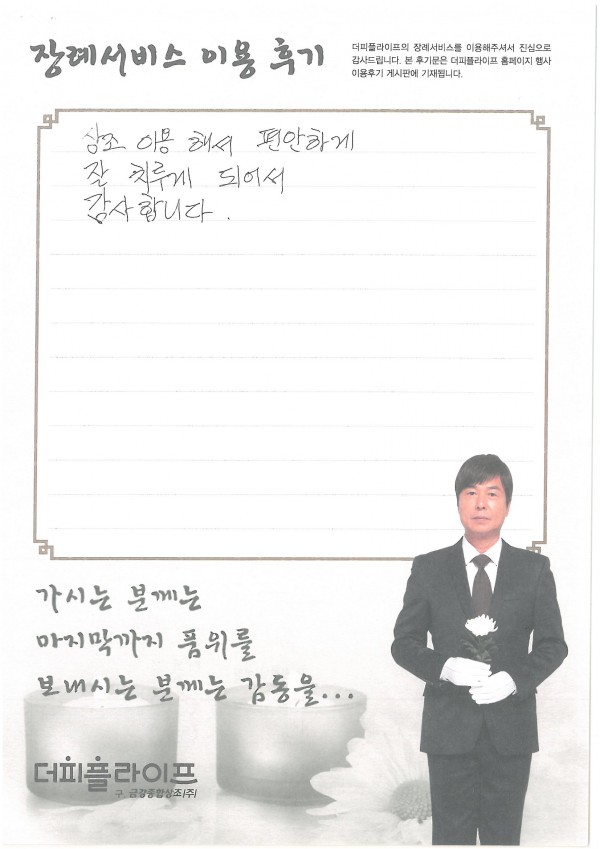 장례서비스 이용 후기
더피플라이프의 장례서비스를 이용해주셔서 진심으로
감사드립니다. 본 후기문은 더피플라이프 홈페이지 행사
이용후기 게시판에 기재됩니다.
상조 이용 해서 편안하게
잘 치루게 되어서
감사합니다.
가시는 분께는
마지막까지 품위를
보내시는 분께는 감동을...
더피플라이프
구. 금강종합상조(주)